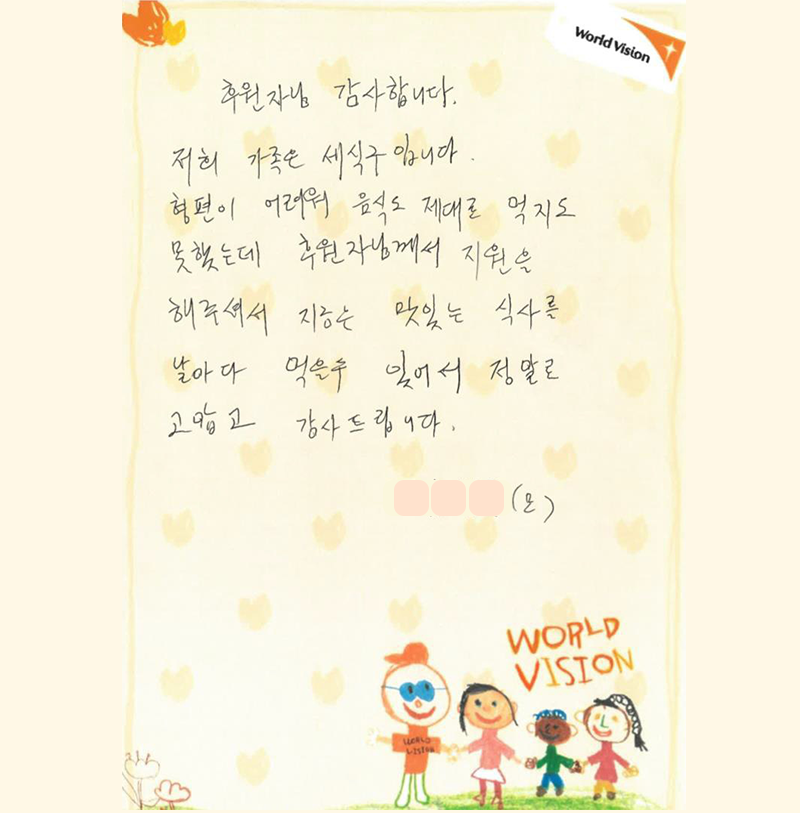 World Vision
후원자님 감사합니다.
저희 가족은 세식구입니다.
형편이 어려워 음식도 제대로 먹지도
못했는데 후원자님께서 지원을
해주셔서 지금은 맛잇는 식사를
날아다 먹을수 잇어서 정말로
고맙고 감사드립니다.
(모)
WORLD
VISION
WORLD
VISION